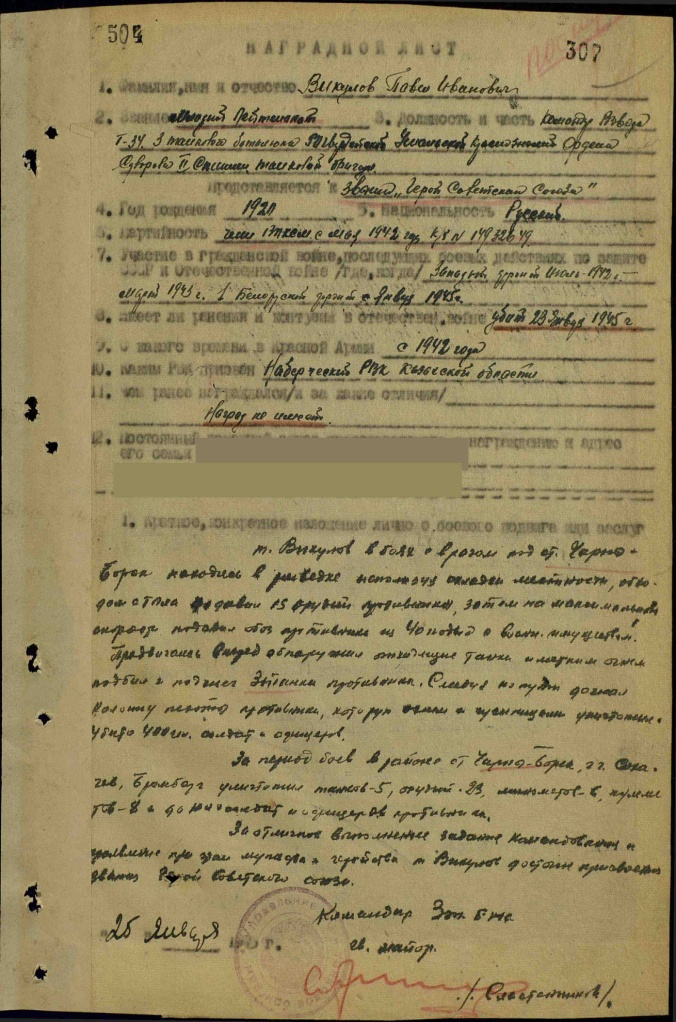 504
НАГРАДНОЙ ЛИСТ
307
1. Фамилия, имя и отчество Викулов Павел Иванович
2. Звание младший лейтенант 3. Должность и часть командир взвода
Т-34 3 танкового батальона 50 гвардейской Уманской Краснознаменной Ордена
Суворова II степени танковой бригады
Представляется к званию "Герой Советского Союза"
4. Год рождения 192 5. Национальность Русский
6. Партийность член ВПКСМ с мая 1942 год
7. Участие в гражданской войне, последующих боевых действиях по защите
СССР и отечественной войне /где, когда/ Западный фронт 1942 г-
март 1943 г. 1 Белорусский фронт с января 1945г.
8. Имеет ли ранения и контузии в отечествен. войне убит 23 января 1945 г
9. С какого времени в Красной Армии с 1942 года
10. Каким РВК призван РВК области
11. Чем ранее награждался /и за какие отличия/
Наград не имеет.
12. Постоянный награждению и адрес
его семьи
1. Краткое, конкретное изложение личного боевого подвига или заслуг
т. Викулов в боях с врагом под ст. Чарно-
Борек находясь в разведке используя складки местности,
подавил 15 орудий противника, затем на максимальной
скорости подавил обоз противника из 40 подвод с воен. имуществом.
Продвигаясь вперед обнаружил отходящие танки и метким огнем
подбил и поджег 3 танка противника. Следуя по пути догнал
колонну пехоты противника, которую огнем и гусеницами уничтожил.
Убито 400 чел. солдат и офицеров.
За период боев в районе ст Чарно-Борек, гг.
Бромберг уничтожил танков-5, орудий-23, минометов-6, пулеме
тов-8 и до солдат и офицеров противника.
За отличное выполнение задание командования и
проявленное при этом мужество и геройство т Викулов достоин присвоения
звания Герой Советского Союза.
Командир 3 тб
гв. майор.
25 января г.